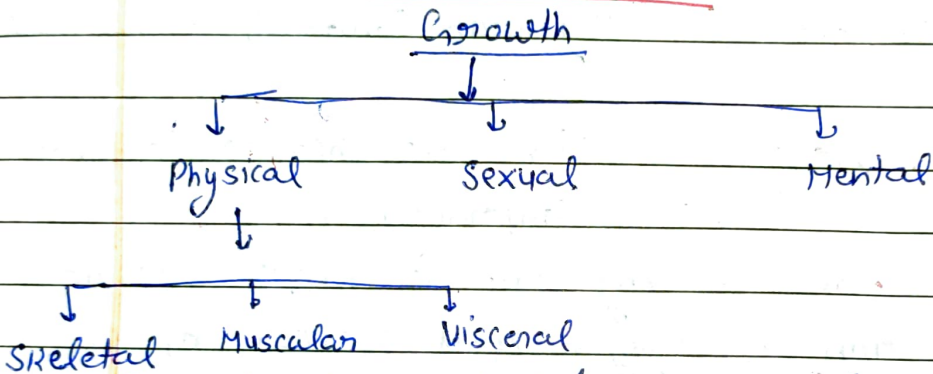 Growth
Physical Sexual Mental
Skeletal Muscalar Visceral